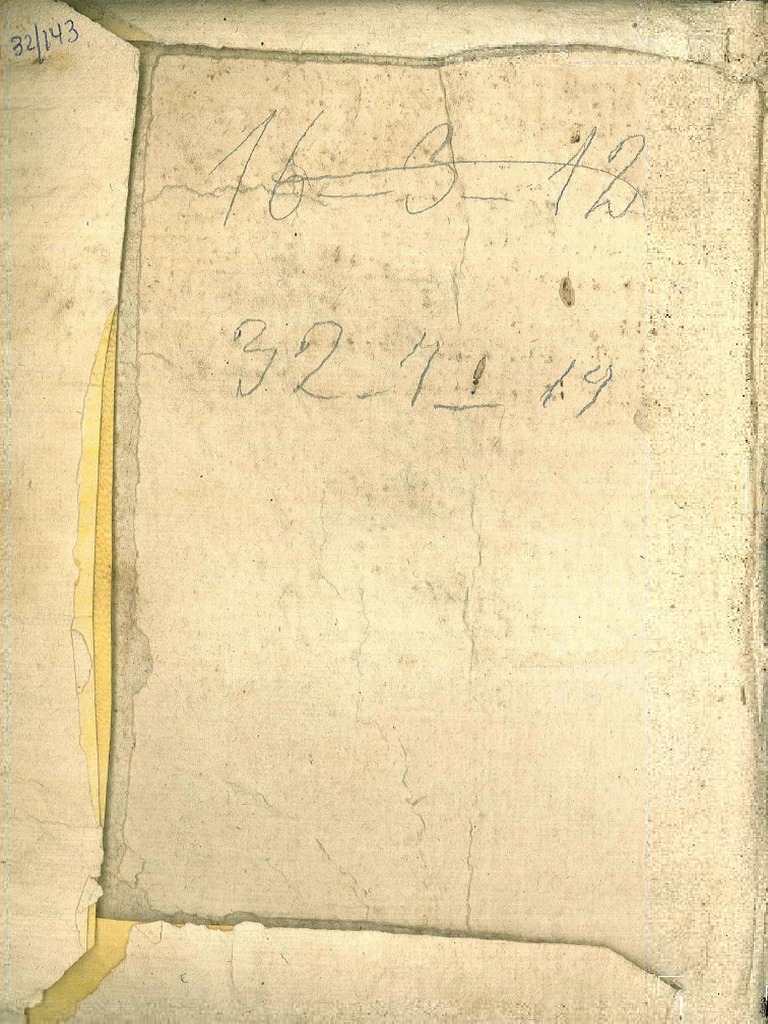 32/143
16-3-12
32-7-19